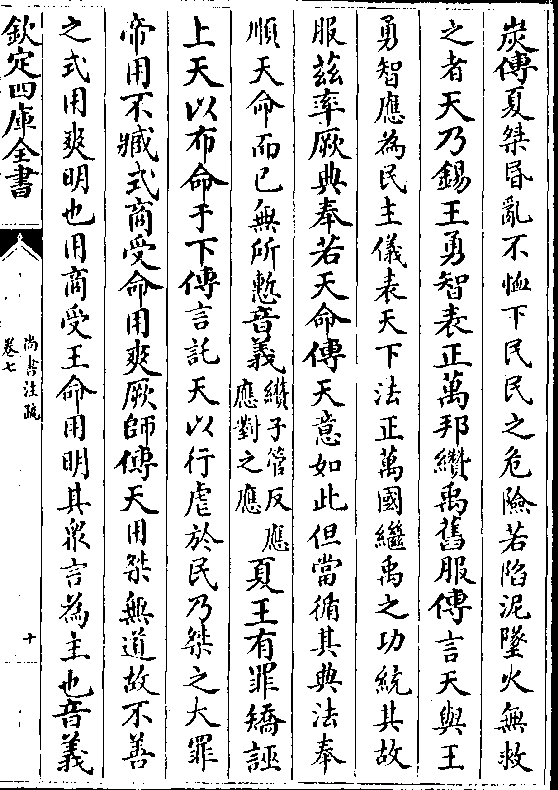 炭傳夏桀昏亂不恤下民民之危險若陷泥墜火無救
之者天乃錫王勇智表正萬邦纘禹舊服傳言天與王
勇智應為民主儀表天下法正萬國繼禹之功統其故
服茲率厥典奉若天命傳天意如此但當循其典法奉
順天命而已無所慙音義纘子管反應
應對之應夏王有罪矯誣
上天以布命于下傳言託天以行虐於民乃桀之大罪
帝用不臧式商受命用爽厥師傳天用桀無道故不善
之式用爽明也用商受王命用明其衆言為主也音義
欽定四庫全書
尚書注疏
卷七
十